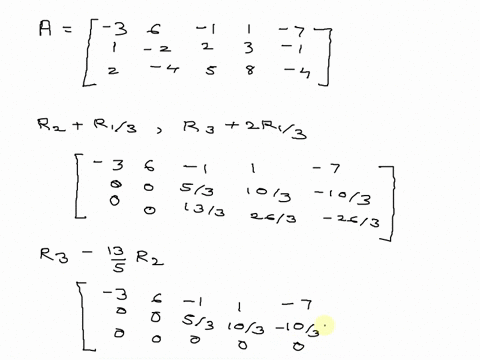 A = [ -3 6 -1 1 -7
1 -2 2 3 -1
2 -4 5 8 -4 ]
R2 + R1/3 , R3 + 2R1/3
[ -3 6 -1 1 -7
0 0 5/3 10/3 -10/3
0 0 13/3 26/3 -26/3 ]
R3 - 13/5 R2
[ -3 6 -1 1 -7
0 0 5/3 10/3 -10/3
0 0 0 0 0